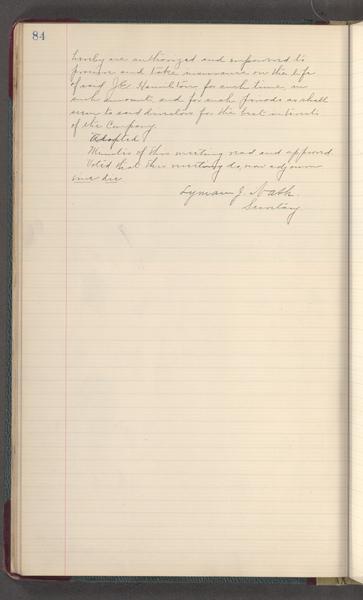 84
hereby are authorized and empowered to
procure and take insurance on the life
of said J.E. Hamilton for such time, in
such amount and for such periods as shall
seem to said directors for the best interests
of the Company.
Adopted.
Minutes of this meeting read and approved.
Voted that this meeting do now adjourn
sine die
Lyman J. Nash
Secretary